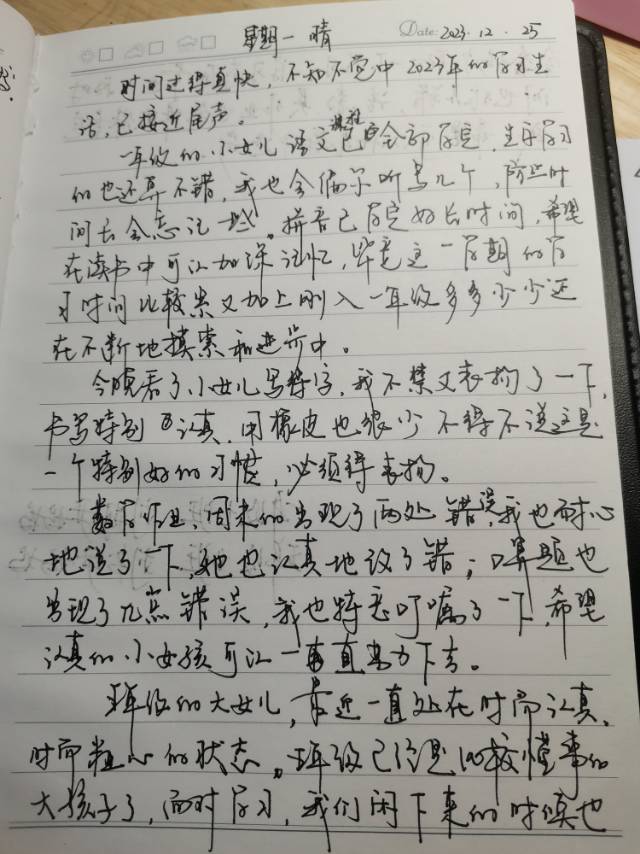 星期一 晴 Date: 2023.12.25
时间过得真快，不知不觉中2023年的学习生
活，已接近尾声。
一年级的小女儿语文课程已全部学完，生字学习
的也还算不错，我也会偶尔听写几个，隔些时
间长会忘记些。拼音已学完好长时间，希望
在读书中可以加深记忆，毕竟这一学期的学
习时间比较紧又加上刚入一年级多多少少还
在不断地摸索和进步中。
今晚看了小女儿写得字，我不禁又表扬了一下，
书写特别的认真，用橡皮也很少不得不说这是
一个特别好的习惯，必须得表扬。
数学作业，周末的出现了两处错误，我也耐心
地说了一下，她也认真地改了错；口算题也
出现了几点错误，我也特意叮嘱了一下，希望
认真的小女孩可以一直努力下去。
年级的大女儿，最近一直处在时而认真，
时而粗心的状态。年级已经是比较懂事的
大孩子了，面对学习，我们闲下来的时候也